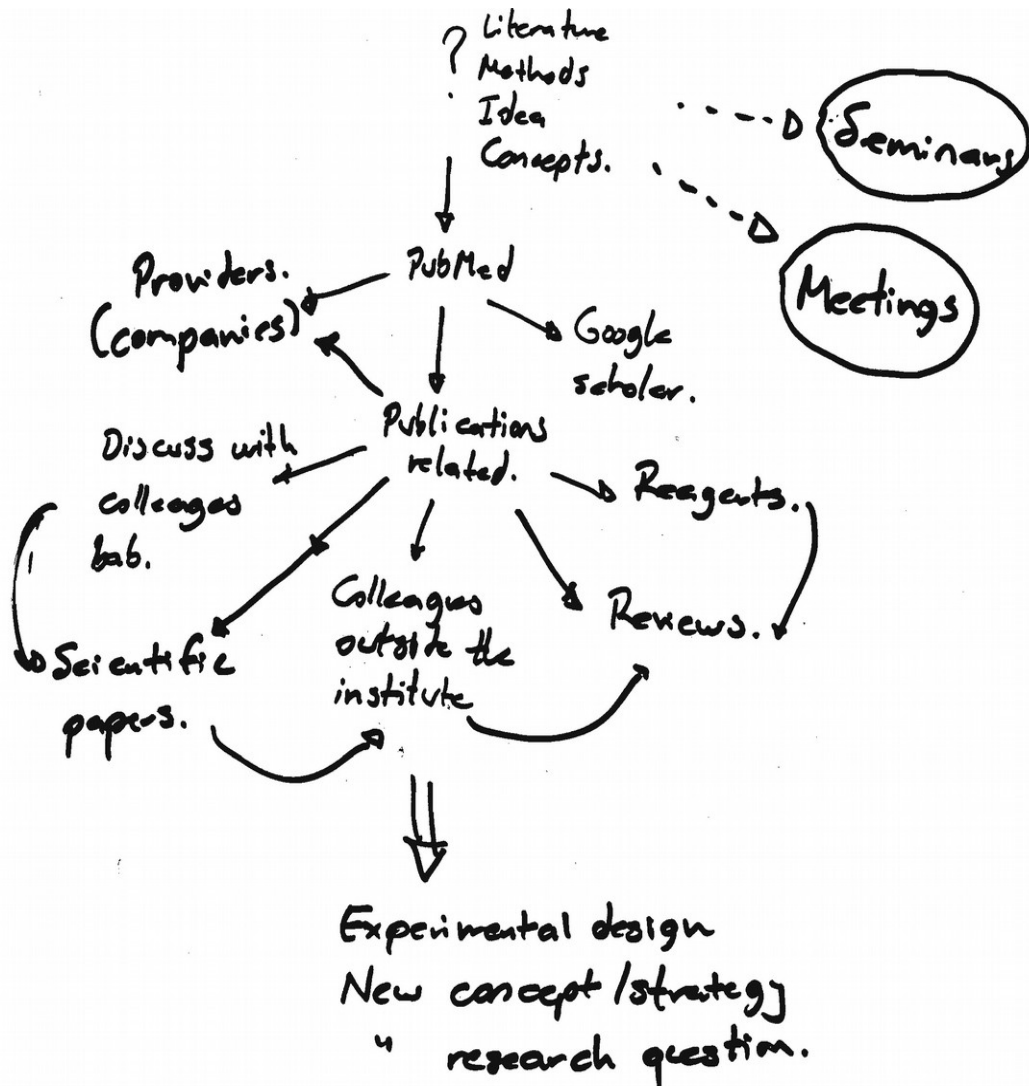 ? Literature
Methods
Idea
Concepts.
Seminars
Meetings
PubMed
Providers.
(companies)
Google
scholar.
Publications
related.
Discuss with
colleages
bab.
Reagents.
Colleagues
outside the
institute
Reviews.
Scientific
papers.
Experimental design
New concept/strategy
" research question.